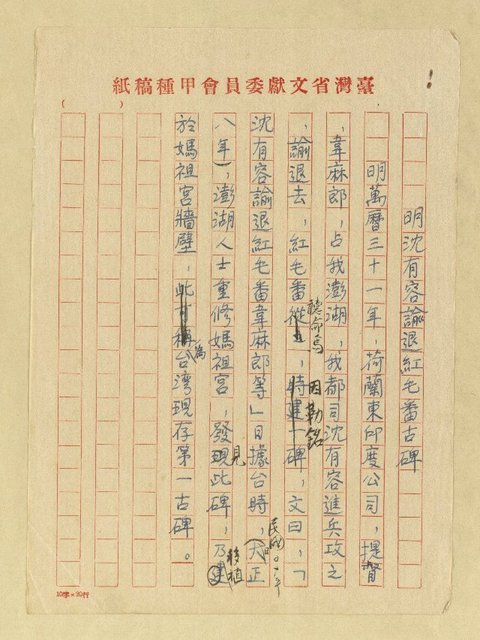 臺灣省文獻委員會甲種稿紙
明沈有容諭退紅毛番古碑
明萬曆三十一年，荷蘭東印度公司，提督
，韋麻郎，占我澎湖，我都司沈有容進兵攻之
，諭退去，紅毛番聽命焉，因勒銘一碑，文曰，「
沈有容諭退紅毛番韋麻郎等」日據台時，（大正
八年），澎湖人士重修媽祖宮，發見此碑，乃移植
於媽祖宮牆壁，此為台湾現存第一古碑。
10字×20行